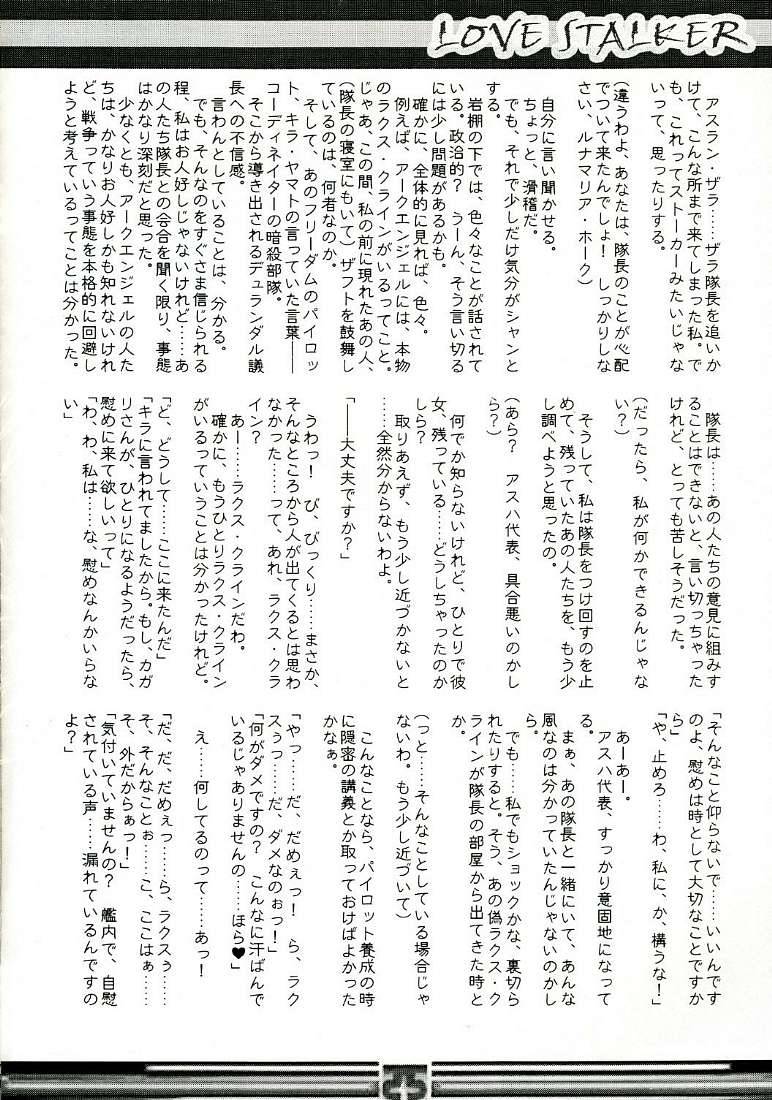 LOVE STALKER
アスラン・ザラ……ザラ隊長を追いか
けて、こんな所まで来てしまった私。で
も、これってストーカーみたいじゃな
いって、思ったりする。
(違うわよ、あなたは、隊長のことが心配
でついて来たんでしょ! しっかりしな
さい、ルナマリア・ホーク)
自分に言い聞かせる。
ちょっと、滑稽だ。
でも、それで少しだけ気分がシャンと
する。
岩棚の下では、色々なことが話されて
いる。政治的? うーん、そう言い切る
には少し問題があるかも。
確かに、全体的に見れば、色々。
例えば、アークエンジェルには、本物
のラクス・クラインがいるってこと。
じゃあ、この間、私の前に現れたあの人、
(隊長の寝室にもいて)ザフトを鼓舞し
ているのは、何者なのか。
そして、あのフリーダムのパイロッ
ト、キラ・ヤマトの言っていた言葉――
コーディネイターの暗殺部隊。
そこから導き出されるデュランダル議
長への不信感。
言わんとしていることは、分かる。
でも、そんなのをすぐさま信じられる
程、私はお人好しじゃないけれど……あ
の人たち隊長との会合を聞く限り、事態
はかなり深刻だと思った。
少なくとも、アークエンジェルの人た
ちは、かなりお人好しかも知れないけれ
ど、戦争っていう事態を本格的に回避し
ようと考えているってことは分かった。
隊長は……あの人たちの意見に組みす
ることはできないと、言い切っちゃった
けれど、とっても苦しそうだった。
(だったら、私が何かできるんじゃな
い?)
そうして、私は隊長をつけ回すのを止
めて、残っていたあの人たちを、もう少
し調べようと思ったの。
(あら? アスハ代表、具合悪いのかし
ら?)
何でか知らないけれど、ひとりで彼
女、残っている……どうしちゃったのか
しら?
取りあえず、もう少し近づかないと
……全然分からないわよ。
「――大丈夫ですか?」
うわっ! び、びっくり……まさか、
そんなところから人が出てくるとは思わ
なかった……って、あれ、ラクス・クラ
イン?
あー……ラクス・クラインだわ。
確かに、もうひとりラクス・クライン
がいるっていうことは分かったけれど。
「ど、どうして……ここに来たんだ」
「キラに言われてましたから。もし、カガ
リさんが、ひとりになるようだったら、
慰めに来て欲しいって」
「わ、わ、私は……な、慰めなんかいらな
い」
「そんなこと仰らないで……いいんです
のよ、慰めは時として大切なことですか
ら」
「や、止めろ……わ、私に、か、構うな!」
あーあー。
アスハ代表、すっかり意固地になって
る。
まぁ、あの隊長と一緒にいて、あんな
風なのは分かっていたんじゃないのかし
ら。
でも……私でもショックかな、裏切ら
れたりすると。そう、あの偽ラクス・ク
ラインが隊長の部屋から出てきた時と
か。
(っと……そんなことしている場合じゃ
ないわ。もう少し近づいて)
こんなことなら、パイロット養成の時
に隠密の講義とか取っておけばよかった
かなぁ。
「やっ……だ、だめぇっ! ら、ラク
スぅっ……だ、ダメなのぉっ!」
「何がダメですの? こんなに汗ばんで
いるじゃありませんの……ほら♥」
え……何してるのって……あっ!
「だ、だ、だめぇっ……ら、ラクスぅ……
そ、そんなことぉ……こ、ここはぁ……
そ、外だからぁっ!」
「気付いていませんの? 艦内で、自慰
されている声……漏れているんですの
よ?」